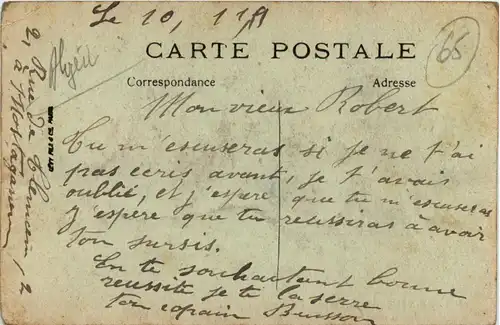 Le 10, 1 19
CARTE POSTALE
65
Algérie
Correspondance
Adresse
Mon vieux Robert
Tu m'escuseras si je ne t'ai
pas ecris avant, je t'avais
oublié, et j'espère que tu m'escuseras
J'espère que tu reussiras à avoir
ton sursis.
En te souhaitant bonne
reussite je te la serre
ton copain Buisson
2, Rue de
à Mostaganem